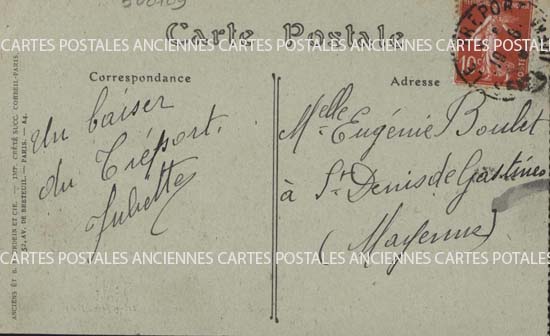 500109
Carte Postale
CARTES POSTALES ANCIENNES CARTES POSTALES ANCIENNES CARTES POSTALES
Correspondance
Adresse
10c
Un baiser
du Tréport.
Juliette
Melle Eugénie Boulet
à St Denis de Gastines
(Mayenne)
52, AV. DE BRETEUIL. — PARIS. — 84.
IMP. CRÉTÉ SUCC. CORBEIL-PARIS
CARTES POSTALES ANCIENNES CARTES POSTALES ANCIENNES CARTES POTALES